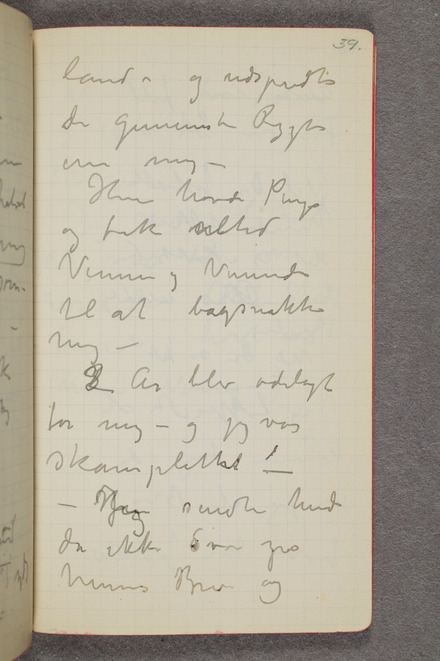 39.
land – og udspredte
de gemeneste Rygter
om mig –
Hun havde Penge
og fik altid
Venner og Veninder
til at bagsnakke
mig –
3 Aar blev ødelagt
for mig – og jeg var
skamplettet !
– Jeg sendte hende
da ikke Svar paa
hennes Brev og